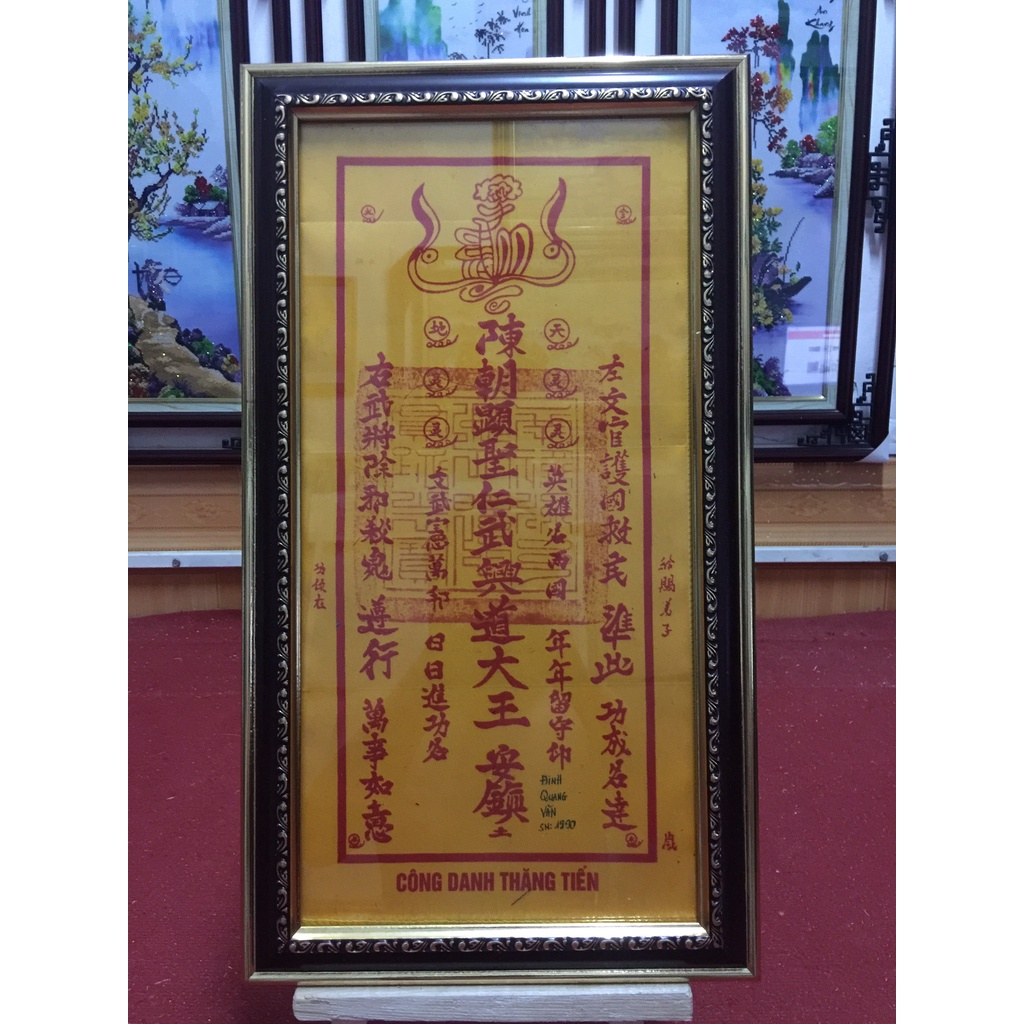 Vinh Hoa
An Khang
天
灵
灵
地
灵
灵
左文官護國救民 準此 功成名達
英雄名兩國 年年留守印
陳朝顯聖仁武興道大王 安鎮
文武憲萬邦 日日進功名
右武將除邪 遵行 萬事如意
給賜弟子
ĐINH
QUANG
VĂN
SN: 1990
CÔNG DANH THĂNG TIẾN